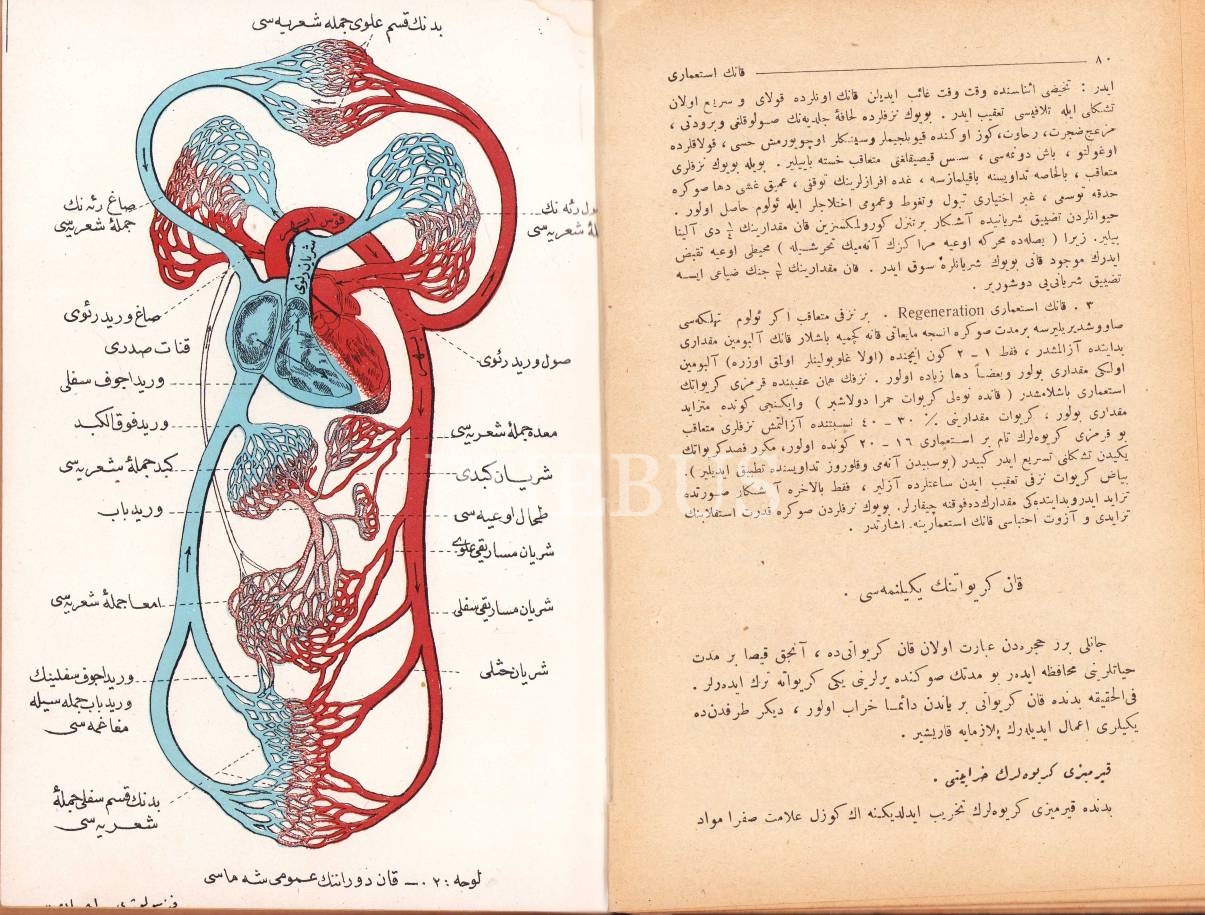 بدنك قسم علوی جمله شعریه سی
صاغ رئه نك
جملهٔ شعریه سی
ول رئه نك
قوس
شریان رئوی
صاغ ورید رئوی
قنات صدری
ورید اجوف سفلی
ورید فوق الكبد
كبد جملهٔ شعریه سی
ورید باب
امعا جملهٔ شعریه سی
ورید اجوف سفلینك
ورید باب جمله سیله
مفاغمه سی
بدنك قسم سفلی جملهٔ
شعریه سی
صول ورید رئوی
معده جملهٔ شعریه سی
شریان كبدی
طحال اوعیه سی
شریان مساریقی علوی
شریان مساریقی سفلی
شریان حثلی
لوحه : ٢٠ — قان دوراننك عمومی شه ماسی
٨٠ قانك استعماری
ایدر : تخیضی اثناسنده وقت وقت غائب ایدیلن قانك اونلرده قولای و سریع اولان
تشكلی ایله تلافیسی تعقیب ایدر . بویوك نزفلرده لحافهٔ جلدیه نك صولوقلغی وبرودتی ،
مزعج ضجرت ، رخاوت ، كوز اوكنده قیویلجیملر وسینكلر اوچویورمش حسی ، قولاقلرده
اوغولتو ، باش دونمه سی ، سس قیصیقلغنی متعاقب خسته باییلیر . بویله بویوك نزفلری
متعاقب ، بالخاصه تداویسنه باقیلمازسه ، غده افرازلرینك توقفی ، عمیق غشی دها صوكره
حدقه توسعی ، غیر اختیاری تبول وتغوط وعمومی اختلاجلر ایله ئولوم حاصل اولور .
حیوانلردن تضییق شریانیده آشكار بر تنزل كورولمكسزین قان مقدارینك دی آلینا
بیلیر. زیرا ( بصله ده محركه اوعیه مراكزك آنه میك تخرشیله ) محیطی اوعیه تقبض
ایدرك موجود قانی بویوك شریانلره سوق ایدر . قان مقدارینك جنك ضیاعی ایسه
تضییق شریانی یی دوشورر .
٣ . قانك استعماری Regeneration . بر نزفی متعاقب اكر ئولوم تهلكه سی
صاووشدیریلیرسه بر مدت صوكره انسجه مایعاتی قانه كچمیه باشلار قانك آلبومین مقداری
بدایتده آزالمشدر ، فقط ١ – ٢ كون ایچنده (اولا غلوبولینلر اولمق اوزره) آلبومین
اولكی مقداری بولور وبعضاً دها زیاده اولور . نزفك همان عقبینده قرمزی كریواتك
استعماری باشلامشدر ( قانده نوه لی كریوات حمرا دولاشیر ) وایكنجی كونده متزاید
مقداری بولور ، كریوات مقدارینی ٪ ٣٠ – ٤٠ نسبتنده آزالتمش نزفلری متعاقب
بو قرمزی كریوه لرك تام بر استعماری ١٦ – ٢٠ كونده اولور، مكرر فصد كریواتك
یكیدن تشكلنی تسریع ایدر كبیدر (بوسببدن آنه می وقلوروز تداویسنده تطبیق ایدیلیر) .
بیاض كریوات نزفی تعقیب ایدن ساعتلرده آزلیر ، فقط بالاخره آشكار صورتده
تزاید ایدر وبدایتده كی مقدارك ده فوقنه چیقارلر. بویوك نزفلردن صوكره قدرت استقلابینك
تزایدی و آزوت احتباسی قانك استعمارینه اشارتدر .
قان كریواتنك یكیلنمه سی .
جانلی برر حجره دن عبارت اولان قان كریواتی ده ، آنجق قیصا بر مدت
حیاتلرینی محافظه ایده ر بو مدتك صوكنده یرلرینی یكی كریواته ترك ایده رلر .
فی الحقیقه بدنده قان كریواتی بر یاندن دائما خراب اولور ، دیكر طرفدن ده
یكیلری اعمال ایدیله رك پلازمایه قاریشیر .
قیرمیزی كریوه لرك خرابیتی .
بدنده قیرمیزی كریوه لرك تخریب ایدلدیكنه اك كوزل علامت صفرا مواد